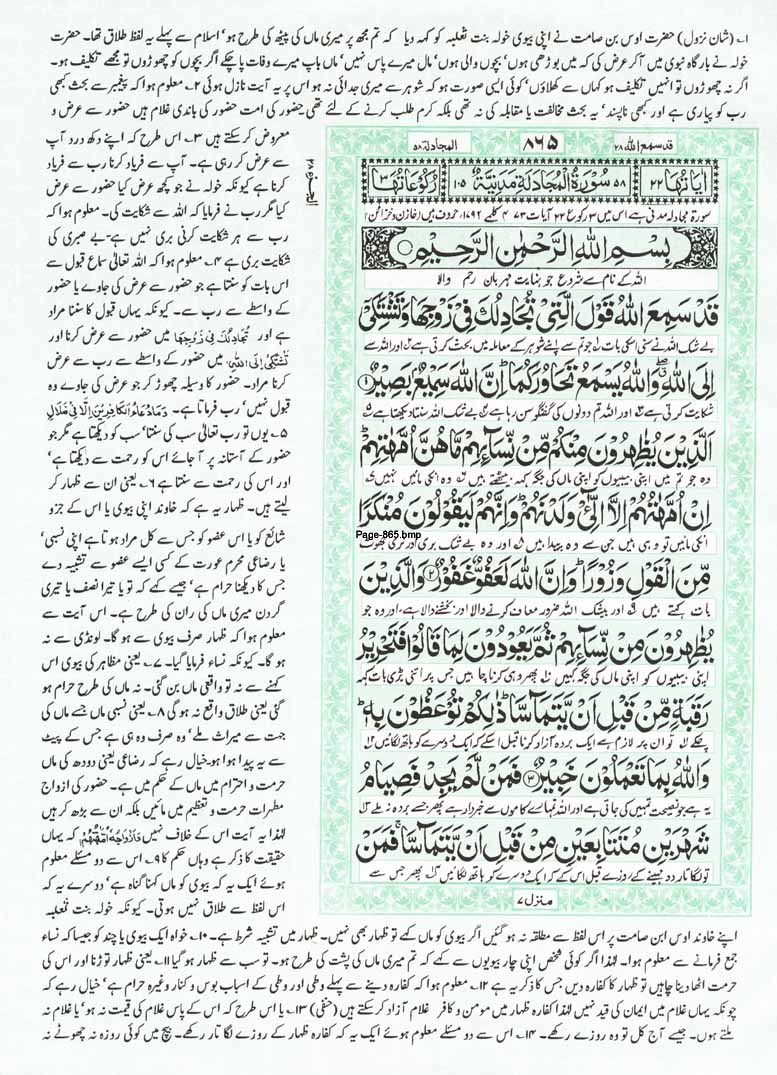 ۱؎ (شان نزول) حضرت اوس بن صامت نے اپنی بیوی خولہ بنت ثعلبہ کو کہہ دیا کہ تم مجھ پر میری ماں کی پیٹھ کی طرح ہو' اسلام سے پہلے یہ لفظ طلاق تھا۔ حضرت
خولہ نے بارگاہ نبوی میں آکر عرض کی کہ میں بوڑھی ہوں' بچوں والی ہوں' مال میرے پاس نہیں' ماں باپ میرے وفات پا چکے اگر بچوں کو چھوڑوں تو مجھے تکلیف ہو۔
اگر نہ چھوڑوں تو انہیں تکلیف ہو کہاں سے کھلاؤں' کوئی ایسی صورت ہو کہ شوہر سے میری جدائی نہ ہو اس پر یہ آیت نازل ہوئی ۲؎ معلوم ہوا کہ پیغمبر سے بحث کبھی
رب کو پیاری ہے اور کبھی ناپسند' یہ بحث مخالفت یا مقابلہ کی نہ تھی بلکہ کرم طلب کرنے کے لئے تھی حضور کی امت حضور کی باندی غلام ہیں حضور سے عرض و
معروض کر سکتے ہیں ۳؎ اس طرح کہ اپنے دکھ درد آپ
سے عرض کر رہی ہے۔ آپ سے فریاد کرنا رب سے فریاد
کرنا ہے کیونکہ خولہ نے جو کچھ عرض کیا حضور سے عرض
کیا مگر رب نے فرمایا کہ اللہ سے شکایت کی۔ معلوم ہوا کہ
رب سے ہر شکایت کرنی بری نہیں ہے۔ بے صبری کی
شکایت بری ہے ۴؎ معلوم ہوا کہ اللہ تعالیٰ سماع قبول سے
اس بات کو سنتا ہے جو حضور سے عرض کی جاوے یا حضور
کے واسطے سے رب سے۔ کیونکہ یہاں قبول کا سننا مراد
ہے اور تُجَادِلُكَ فِیْ زَوْجِهَا میں حضور سے عرض کرنا اور
تَشْتَكِیْ اِلَى اللهِ میں حضور کے واسطے سے رب سے عرض
کرنا مراد۔ حضور کا وسیلہ چھوڑ کر جو عرض کی جاوے وہ
قبول نہیں' رب فرماتا ہے۔ وَمَا دُعَاءُ الْكَافِرِيْنَ اِلَّا فِيْ ضَلَالٍ
۵؎ یوں تو رب تعالیٰ سب کی سنتا' سب کو دیکھتا ہے مگر جو
حضور کے آستانہ پر آجائے اس کو رحمت سے دیکھتا ہے'
اور اس کی رحمت سے سنتا ہے ۶؎ یعنی ان سے ظہار کر
لیتے ہیں۔ ظہار یہ ہے کہ خاوند اپنی بیوی یا اس کے جزو
شائع کو یا اس عضو کو جس سے کل مراد ہوتا ہے اپنی نسبی'
یا رضاعی محرم عورت کے کسی ایسے عضو سے تشبیہ دے
جس کا دیکھنا حرام ہے' جیسے کہے کہ تو یا تیرا نصف یا تیری
گردن میری ماں کی ران کی طرح ہے۔ اس آیت سے
معلوم ہوا کہ ظہار صرف بیوی سے ہوگا۔ لونڈی سے نہ
ہوگا۔ کیونکہ نساء فرمایا گیا۔ ۷؎ یعنی مظاہر کی بیوی اس
کہنے سے نہ تو واقعی ماں بن گئی۔ نہ ماں کی طرح حرام ہو
گئی یعنی طلاق واقع نہ ہوگی ۸؎ یعنی نسبی ماں جسے ماں کی
جہت سے میراث ملے' وہ صرف وہ ہی ہے جس کے پیٹ
سے یہ پیدا ہوا ہو۔ خیال رہے کہ رضاعی یعنی دودھ کی ماں
حرمت و احترام میں ماں کے حکم میں ہے۔ حضور کی ازواج
مطہرات حرمت و تعظیم میں مائیں بلکہ ان سے بڑھ کر ہیں
لہٰذا یہ آیت اس کے خلاف نہیں وَاَزْوَاجُهٗ اُمَّهٰتُهُمْ کہ یہاں
حقیقت کا ذکر ہے وہاں حکم کا ۹؎ اس سے دو مسئلے معلوم
ہوئے ایک یہ کہ بیوی کو ماں کہنا گناہ ہے' دوسرے یہ کہ
اس لفظ سے طلاق نہیں ہوتی۔ کیونکہ خولہ بنت ثعلبہ
قد سمع اللہ ۲۸ ۸۶۵ المجادلۃ ۵۸
اٰیَاتُهَا ۲۲ ۵۸ سُوْرَةُ الْمُجَادَلَةِ مَدَنِيَّةٌ ۱۰۵ رُكُوْعَاتُهَا ۳
سورۃ مجادلہ مدنی ہے اس میں ۳ رکوع ۲۲ آیات ۴۷۳ کلمے ۱۷۹۲ حروف ہیں (خازن و خزائن)
بِسْمِ اللهِ الرَّحْمٰنِ الرَّحِيْمِ
اللہ کے نام سے شروع جو نہایت مہربان رحم والا
قَدْ سَمِعَ اللهُ قَوْلَ الَّتِيْ تُجَادِلُكَ فِيْ زَوْجِهَا وَتَشْتَكِيْٓ
بے شک اللہ نے سنی اسکی بات ۱؎ جو تم سے اپنے شوہر کے معاملہ میں بحث کرتی ہے ۲؎ اور اللہ سے
اِلَى اللهِ ۖ وَاللهُ يَسْمَعُ تَحَاوُرَكُمَا ؕ اِنَّ اللهَ سَمِيْعٌۢ بَصِيْرٌ ﴿۱﴾
شکایت کرتی ہے ۳؎ اور اللہ تم دونوں کی گفتگو سن رہا ہے ۴؎ بے شک اللہ سنتا دیکھتا ہے ۵؎
اَلَّذِيْنَ يُظٰهِرُوْنَ مِنْكُمْ مِّنْ نِّسَآئِهِمْ مَّا هُنَّ اُمَّهٰتِهِمْ ؕ
وہ جو تم میں اپنی بیبیوں کو اپنی ماں کی جگہ کہہ بیٹھتے ہیں ۶؎ وہ انکی مائیں نہیں ۷؎
اِنْ اُمَّهٰتُهُمْ اِلَّا الّٰٓئِيْ وَلَدْنَهُمْ ؕ وَاِنَّهُمْ لَيَقُوْلُوْنَ مُنْكَرًا
Page-865.bmp
انکی مائیں تو وہی ہیں جن سے وہ پیدا ہیں ۸؎ اور وہ بے شک بری اور نری جھوٹ
مِّنَ الْقَوْلِ وَزُوْرًا ؕ وَاِنَّ اللهَ لَعَفُوٌّ غَفُوْرٌ ﴿۲﴾ وَالَّذِيْنَ
بات کہتے ہیں ۹؎ اور بیشک اللہ ضرور معاف کرنے والا اور بخشنے والا ہے، اور وہ جو
يُظٰهِرُوْنَ مِنْ نِّسَآئِهِمْ ثُمَّ يَعُوْدُوْنَ لِمَا قَالُوْا فَتَحْرِيْرُ
اپنی بیبیوں کو اپنی ماں کی جگہ کہیں ۱۰؎ پھر وہی کرنا چاہیں جس پر اتنی بڑی بات کہہ
رَقَبَةٍ مِّنْ قَبْلِ اَنْ يَّتَمَآسَّا ؕ ذٰلِكُمْ تُوْعَظُوْنَ بِهٖ ؕ
چکے ۱۱؎ تو ان پر لازم ہے ایک بردہ آزاد کرنا قبل اسکے کہ ایک دوسرے کو ہاتھ لگائیں ۱۲؎
وَاللهُ بِمَا تَعْمَلُوْنَ خَبِيْرٌ ﴿۳﴾ فَمَنْ لَّمْ يَجِدْ فَصِيَامُ
یہ ہے جو نصیحت تمہیں کی جاتی ہے اور اللہ تمہارے کاموں سے خبردار ہے پھر جسے بردہ نہ ملے ۱۳؎
شَهْرَيْنِ مُتَتَابِعَيْنِ مِنْ قَبْلِ اَنْ يَّتَمَآسَّا ۚ فَمَنْ
تو لگاتار دو مہینے کے روزے قبل اس کے کہ ایک دوسرے کو ہاتھ لگائیں ۱۴؎ پھر جس سے
منزل ۷
اپنے خاوند اوس ابن صامت پر اس لفظ سے مطلقہ نہ ہو گئیں اگر بیوی کو ماں کہے تو ظہار بھی نہیں۔ ظہار میں تشبیہ شرط ہے۔ ۱۰؎ خواہ ایک بیوی یا چند کو جیسا کہ نساء
جمع فرمانے سے معلوم ہوا۔ لہٰذا اگر کوئی شخص اپنی چار بیویوں سے کہے کہ تم میری ماں کی پشت کی طرح ہو۔ تو سب سے ظہار ہو گیا ۱۱؎ یعنی ظہار توڑنا اور اس کی
حرمت اٹھا دینا چاہیں تو ظہار کا کفارہ دیں جس کا ذکر یہ ہے ۱۲؎ معلوم ہوا کہ کفارہ دینے سے پہلے وطی اور وطی کے اسباب بوس و کنار وغیرہ حرام ہے' خیال رہے کہ
چونکہ یہاں غلام میں ایمان کی قید نہیں لہٰذا کفارہ ظہار میں مومن و کافر غلام آزاد کر سکتے ہیں (حنفی) ۱۳؎ یا اس طرح کہ اس کے پاس غلام کی قیمت نہ ہو' یا غلام نہ
ملتے ہوں۔ جیسے آج کل تو وہ روزے رکھے۔ ۱۴؎ اس سے دو مسئلے معلوم ہوئے ایک یہ کہ کفارہ ظہار کے روزے لگاتار رکھے۔ بیچ میں کوئی روزہ نہ چھوٹے نہ